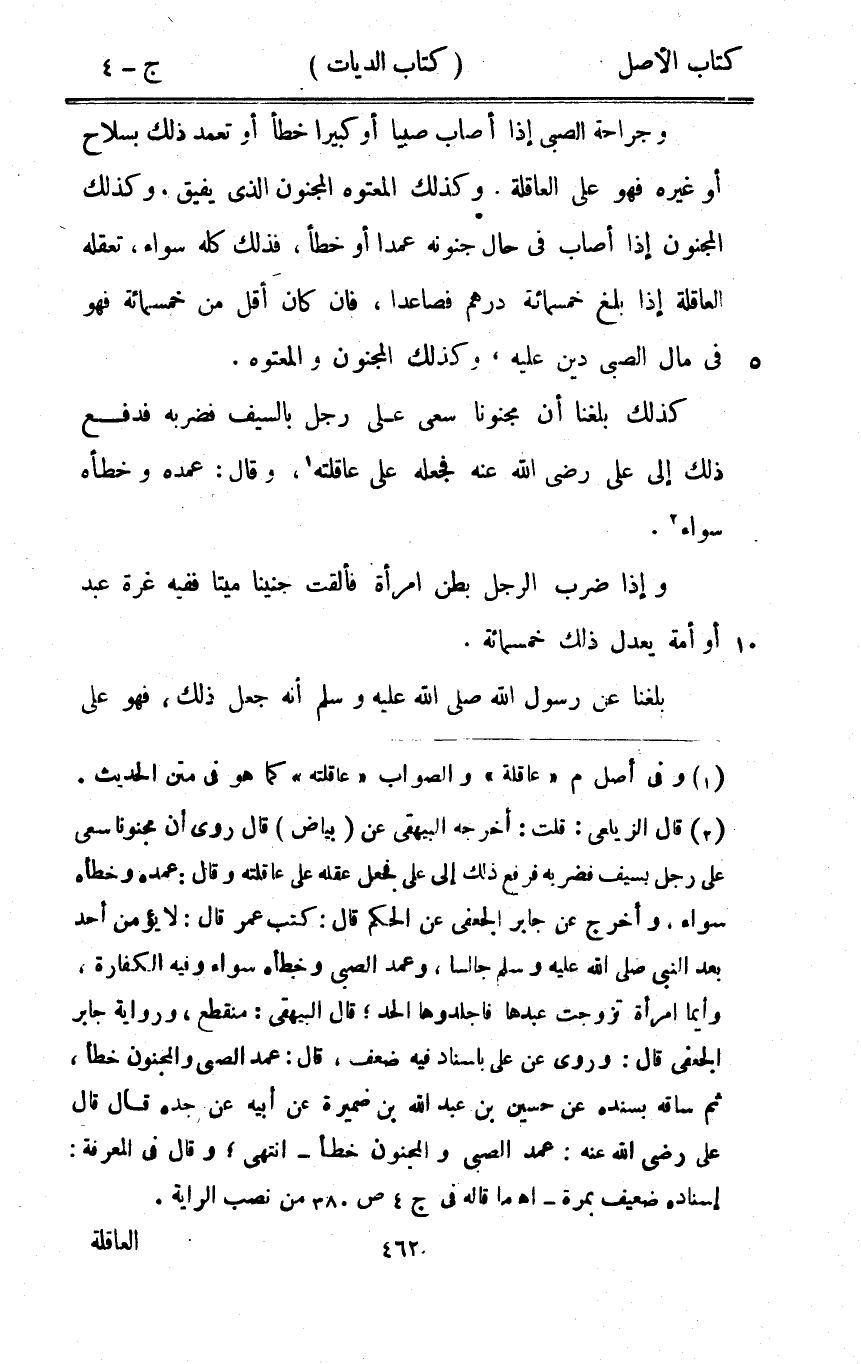 كتاب الأصل ( كتاب الديات ) ج – ٤
و جراحة الصبى إذا أصاب صبيا أو كبيرا خطأ أو تعمد ذلك بسلاح
أو غيره فهو على العاقلة . وكذلك المعتوه المجنون الذى يفيق . وكذلك
المجنون إذا أصاب فى حال جنونه عمدا أو خطأ ، فذلك كله سواء ، تعقله
العاقلة إذا بلغ خمسمائة درهم فصاعدا ، فان كان أقل من خمسمائة فهو
٥ فى مال الصبى دين عليه ، وكذلك المجنون و المعتوه .
كذلك بلغنا أن مجنونا سعى على رجل بالسيف فضربه فدفع
ذلك إلى على رضى الله عنه فجعله على عاقلته١ ، و قال : عمده و خطأه
سواء٢ .
و إذا ضرب الرجل بطن امرأة فألقت جنينا ميتا ففيه غرة عبد
١٠ أو أمة يعدل ذلك خمسمائة .
بلغنا عن رسول الله صلى الله عليه و سلم أنه جعل ذلك ، فهو على
(١) و فى أصل م « عاقلة » و الصواب « عاقلته » كما هو فى متن الحديث .
(٢) قال الزيلعى : قلت : أخرجه البيهقى عن ( بياض ) قال روى أن مجنونا سعى
على رجل بسيف فضربه فرفع ذلك إلى على فجعل عقله على عاقلته و قال : عمده و خطأه
سواء ، و أخرج عن جابر الجعفى عن الحكم قال : كتب عمر قال : لا يؤمن أحد
بعد النبى صلى الله عليه و سلم جالسا ، وعمد الصبى و خطأه سواء و فيه الكفارة ،
وأيما امرأة تزوجت عبدها فاجلدوها الحد ؛ قال البيهقى : منقطع ، و رواية جابر
الجعفى قال : و روى عن على باسناد فيه ضعف ، قال : عمد الصبى و المجنون خطأ ،
ثم ساقه بسنده عن حسين بن عبد الله بن ضميرة عن أبيه عن جده قال قال
على رضى الله عنه : عمد الصبى و المجنون خطأ – انتهى ؛ و قال فى المعرفة :
إسناده ضعيف بمرة – اه ما قاله فى ج ٤ ص ٣٨٠ من نصب الراية .
٤٦٢ العاقلة